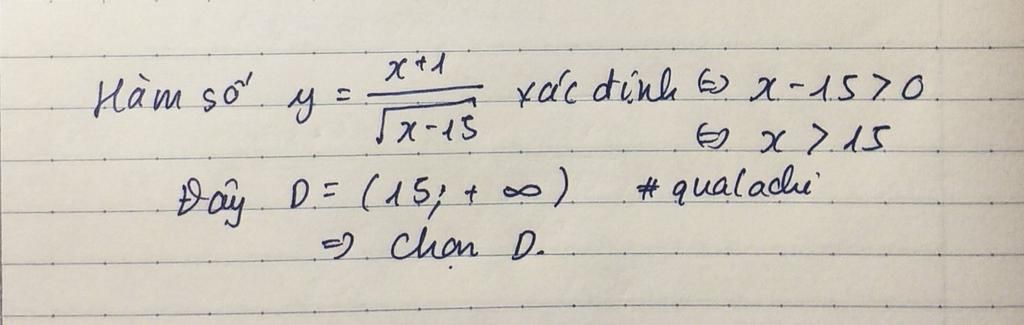 Hàm số y = \frac{x+1}{\sqrt{x-15}} xác định ⇔ x - 15 > 0
⇔ x > 15
Đây D = (15; + ∞) # qualachi
⇒ Chọn D.